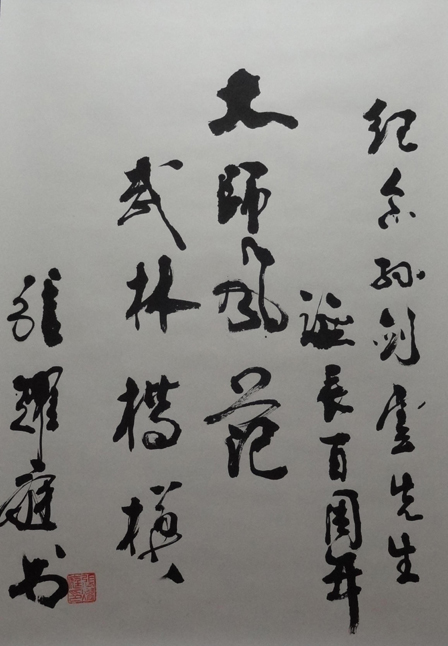 纪念孙剑雲先生
诞辰百周年
大師风范
武林楷模
张耀庭书